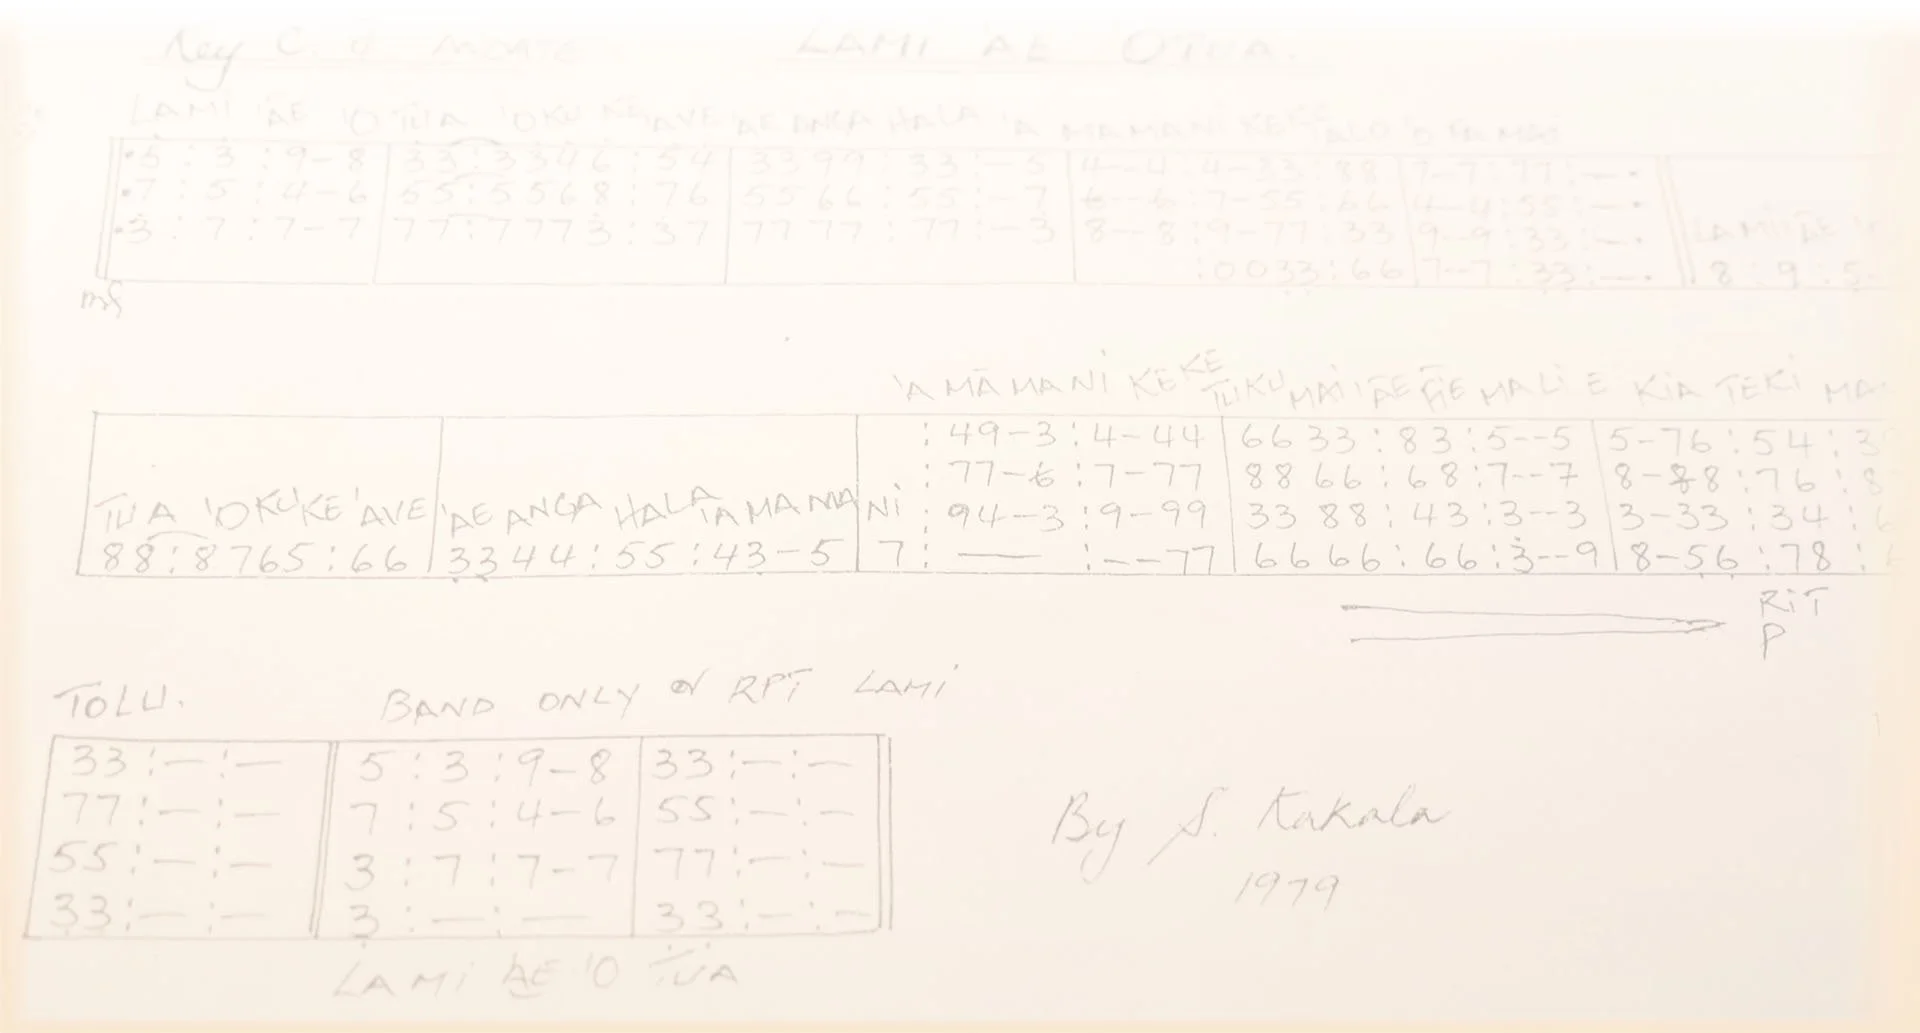 Key C. 4 LAMI 'AE OTUA.
LAMI 'AE 'OTUA 'OKU KE 'AVE 'AE ANGA HALA 'A MAMANI KEKE
•5 : 3 : 9-8 | 33 : 3346 : 54 | 3399 : 33 : -5 | 4--4 : 4-33 : 88 | 7-7 : 77 : -•
•7 : 5 : 4-6 | 55 : 5568 : 76 | 5566 : 55 : -7 | 6--6 : 7-55 : 66 | 4-4 : 55 : -•
•3 : 7 : 7-7 | 77 : 7773 : 37 | 7777 : 77 : -3 | 8--8 : 9-77 : 33 | 9--9 : 33 : -•
LAMI 'AE
: 0033 : 66 | 7--7 : 33 : -• 8 : 9 : 5-
mf
'A MAMANI KEKE TUKU MAI 'AE FIEMALIE KIA TEKI MA
: 49-3 : 4-44 | 6633 : 83 : 5--5 | 5-76 : 54 : 3
: 77-6 : 7-77 | 8866 : 68 : 7--7 | 8-88 : 76 : 8
TUA 'OKU KE 'AVE 'AE ANGA HALA 'A MAMANI : 94-3 : 9-99 | 3388 : 43 : 3--3 | 3-33 : 34 : 6
88 : 8765 : 66 | 3344 : 55 : 43-5 | 7 : — : --77 | 6666 : 66 : 3--9 | 8-56 : 78 : 6
RIT
P
TOLU. BAND ONLY or RPT LAMI
33 : — : — || 5 : 3 : 9-8 | 33 : — : —
77 : — : — || 7 : 5 : 4-6 | 55 : — : —
55 : — : — || 3 : 7 : 7-7 | 77 : — : —
33 : — : — || 3 : — : — | 33 : — : —
LAMI 'AE 'OTUA
By S. Kakala
1979